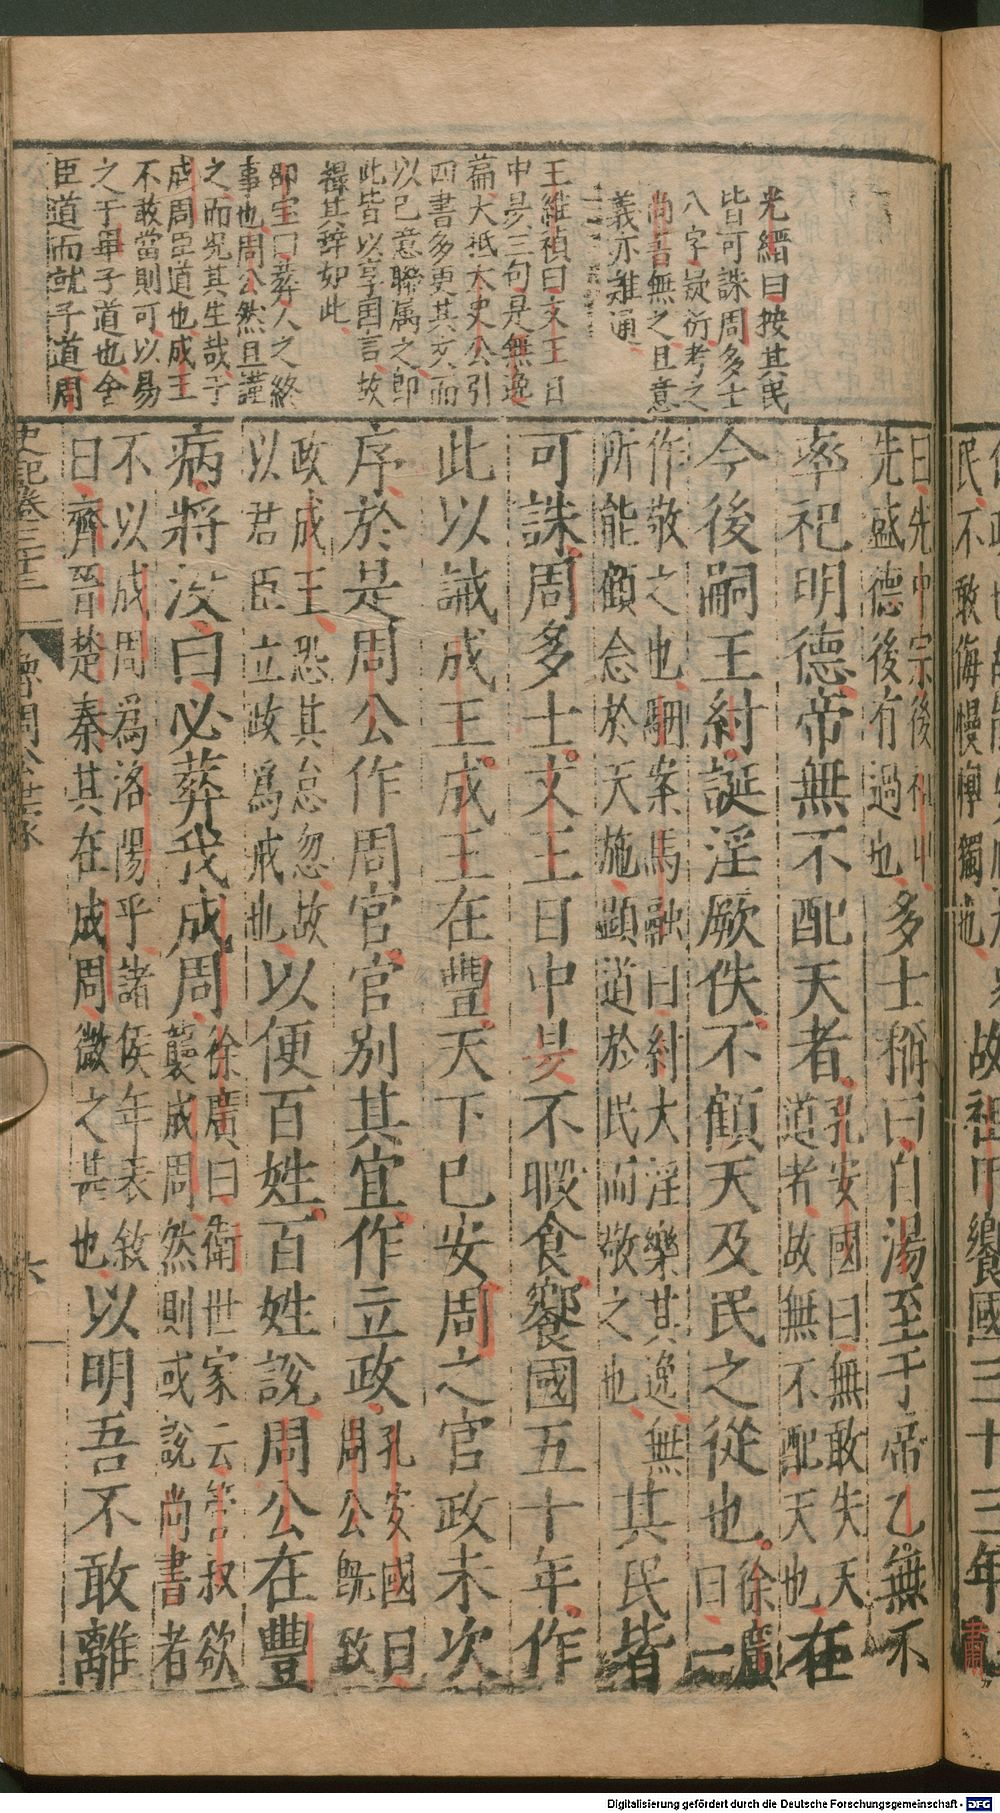 光縉曰按其民
皆可誅周多士
八字疑衍考之
尚書無之且意
義亦難通
王維禎曰文王日
中昃三句是無逸
篇大抵太史公引
四書多更其文而
以已意聯属之即
此皆以享国言故
櫽其辞如此
邵宝曰葬人之終
事也周公然且謹
之而况其生哉于
成周臣道也成王
不敢當則可以易
之于畢子道也舍
臣道而就子道周
民不敢侮慢惸獨也
故祖甲饗國三十三年
曰先中宗後祖甲
先盛德後有過也
多士稱曰自湯至于帝乙無不
率祀明德帝無不配天者
孔安國曰無敢失天
道者故無不配天也
在
今後嗣王紂誕淫厥佚不顧天及民之從也
徐廣
曰一
作敬之也駰案馬融曰紂大淫樂其逸無
所能顧念於天施顯道於民而敬之也
其民皆
可誅周多士文王日中昃不暇食饗國五十年作
此以誡成王成王在豐天下已安周之官政未次
序於是周公作周官官别其宜作立政
孔安國曰
周公既致
政成王恐其怠忽故
以君臣立政為戒也
以便百姓百姓說周公在豐
病將没曰必葬我成周
徐廣曰衛世家云管叔欲
襲成周然則或說尚書者
不以成周爲洛陽乎諸侯年表叙
曰齊晉楚秦其在成周微之甚也
以明吾不敢離
史記卷三十三
魯周公世家
六
Digitalisierung gefördert durch die Deutsche Forschungsgemeinschaft - DFG